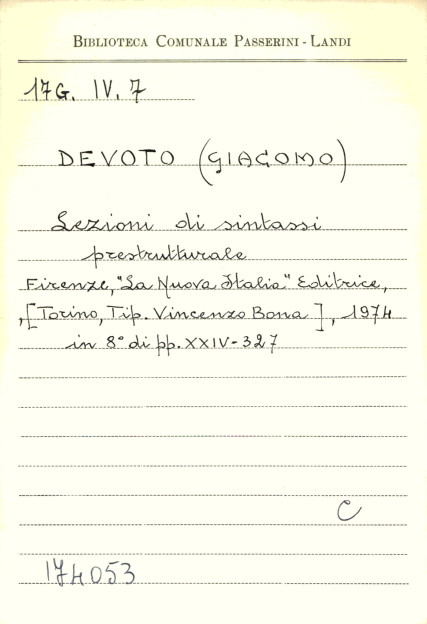 BIBLIOTECA COMUNALE PASSERINI - LANDI
17G. IV. 7
DEVOTO (GIACOMO)
Lezioni di sintassi
prestrutturale
Firenze, "La Nuova Italia" Editrice,
,[Torino, Tip. Vincenzo Bona], 1974
in 8° di pp. XXIV-327
C
174053